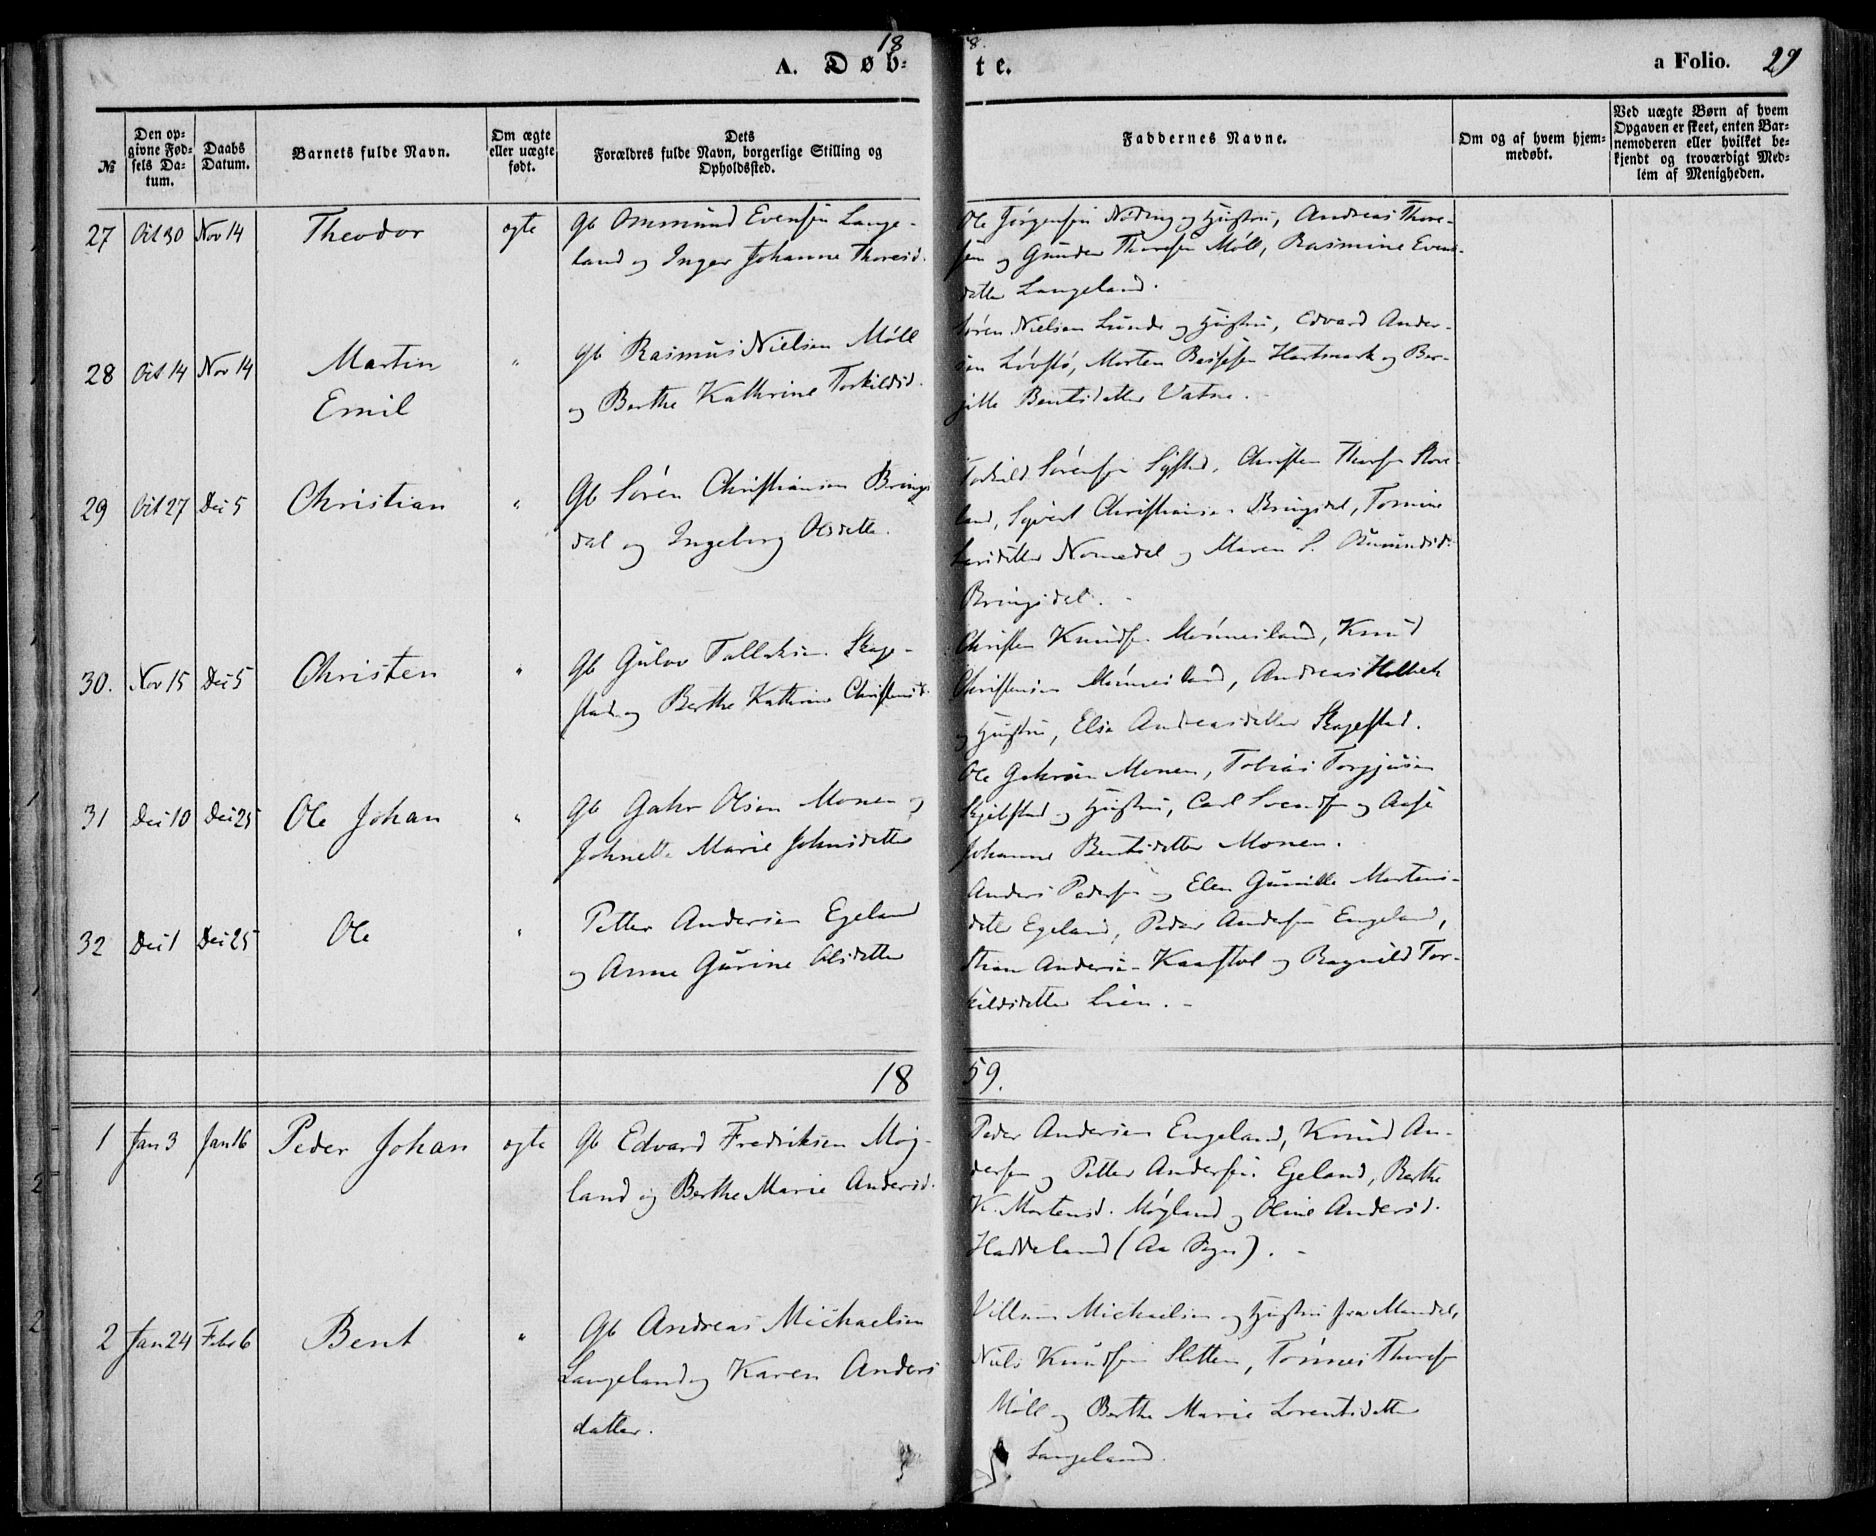 18
A. Døb-
te.
a Folio. 29
№
Den op-
givne Fød-
sels Da-
tum.
Daabs
Datum.
Barnets fulde Navn.
Om ægte
eller uægte
født.
Dets
Forældres fulde Navn, borgerlige Stilling og
Opholdssted.
Faddernes Navne.
Om og af hvem hjem-
medøbt.
Ved uægte Børn af hvem
Opgaven er skeet, enten Bar-
nemoderen eller hvilket be-
kjendt og troværdigt Med-
lem af Menigheden.
27 Oct 30 Nov 14 Theodor ægte Gb Ommund Evensen Lange-
land og Inger Johanne Thoresd.
Ole Jørgensen Nøding og Hustru, Andreas Thore-
sen og Gunder Thoresen Møll, Rasmine Evens-
datter Langeland.
28 Oct 14 Nov 14 Martin
Emil
" Gb Rasmus Nielsen Møll
og Berthe Kathrine Torkildsd.
Søren Nielsen Lunde og Hustru, Edvard Ander-
sen Løvstø, Morten Hartmark og Ber-
gitte Bentsdatter Vatne.
29 Oct 27 Dec 5 Christian " Gb Søren Christiansen Brings
dal og Ingeborg Olsdatter.
Torkild Sørensen Christen Thorsen Store-
land, Syvert Christiansen Bringsdal, Tomine
Larsdatter Nomedal og Maren S.
Bringsdal.
30. Nov 15 Dec 5 Christen " Gb Gulov Tallaksen Skage-
stad og Berthe Kathrine Christensd.
Christen Knudsen Mønnesland, Knud
Christensen Mønnesland, Andreas Holbek
og Hustru, Else Andreasdatter Skagestad.
31 Dec 10 Dec 25 Ole Johan " Gb Gahr Olsen Monen og
Johnette Marie Johnsdatter
Ole Gahrsen Monen, Tobias Torgjusen
Skjelstad og Hustru, Carl Svendsen og Aase
Johanne Bentsdatter Monen.
32 Dec 1 Dec 25 Ole " Petter Andersen Egeland
og Anne Gurine Olsdatter
Anders Pedersen og Elen Gunille Martens-
datter Egeland, Peder Andersen Engeland,
Stian Andersen Kaafjel og Ragnild Tor-
kildsdatter Lien.
1859.
1 Jan 3 Jan 16 Peder Johan ægte Gb Edvard Fredriksen Møg-
land og Berthe Marie Andersd.
Peder Andersen Engeland, Knud An-
dersen og Petter Andersen Egeland, Berthe
K. Martensd. Møgland og Oline Andersd.
Haddeland (Aa Sogn).
2 Jan 24 Febr 6 Bent " Gb Andreas Michaelsen
Langeland og Karen Anders
datter.
Villum Michaelsen og Hustru fra Mandal,
Niels Knudsen Sletten, Tønnes Thoresen
Møll og Berthe Marie Lorentsdatter
Langeland.